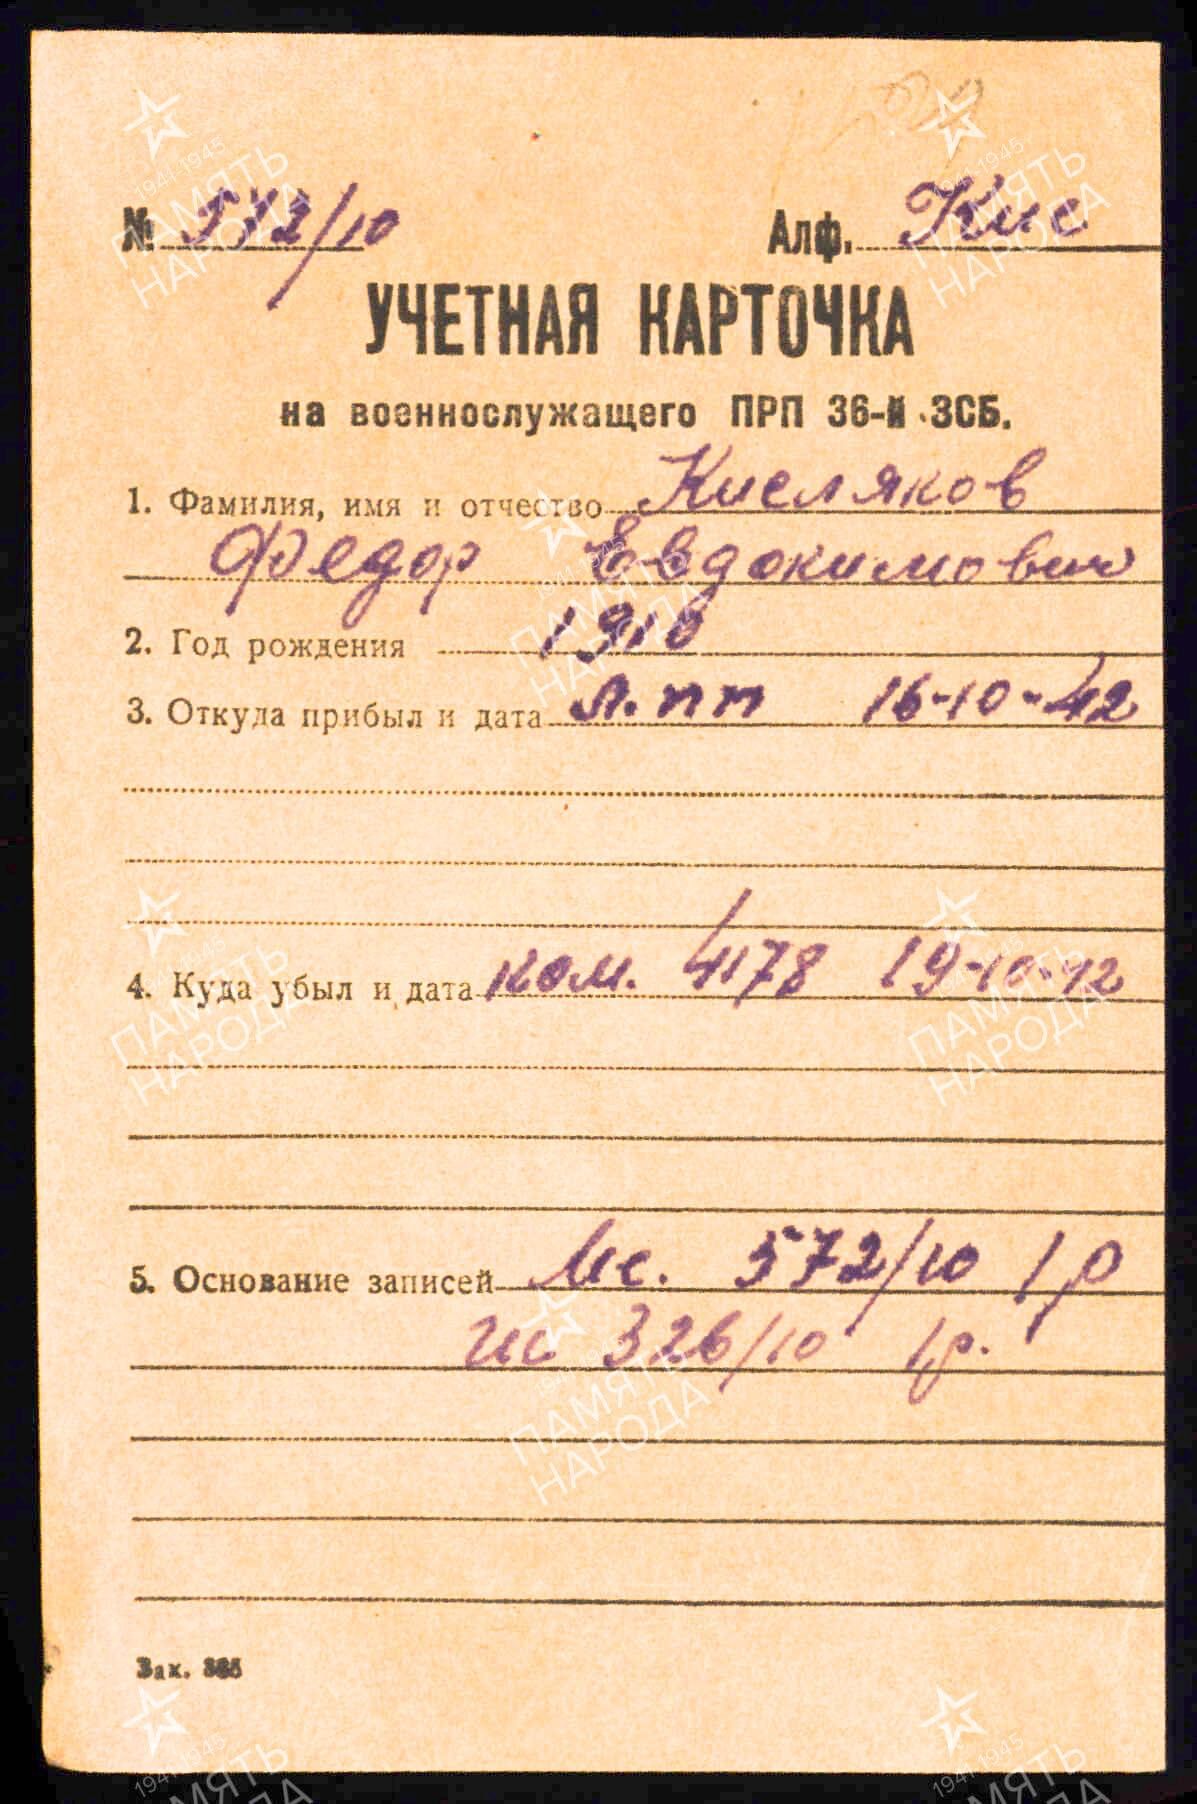 № 572/10 Алф. Кис
УЧЕТНАЯ КАРТОЧКА
на военнослужащего ПРП 36-й ЗСБ.
1. Фамилия, имя и отчество Кисляков
Федор Евдокимович
2. Год рождения 1910
3. Откуда прибыл и дата Л. ПП 16-10-42
4. Куда убыл и дата ком. 4178 19-10-42
5. Основание записей Ис. 572/10 1р
ис 326/10 1р.
Зак. 365
1941-1945
ПАМЯТЬ
НАРОДА